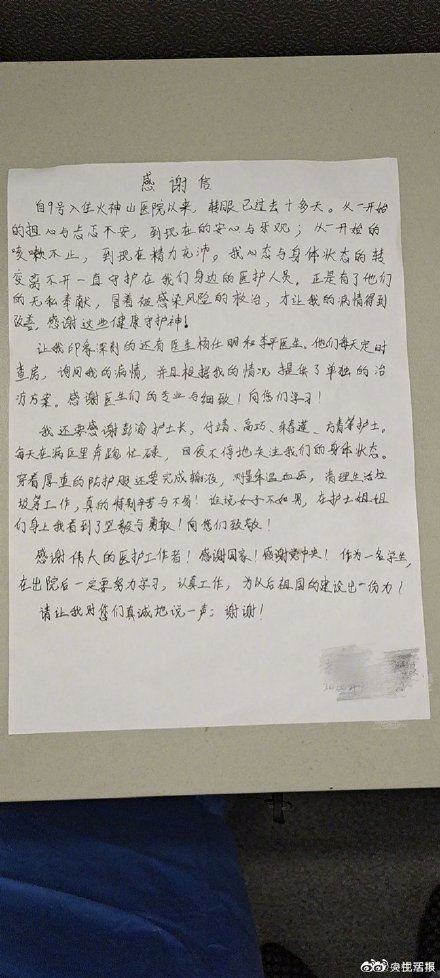 感谢信
自9号入住火神山医院以来，转眼已过去十多天。从一开始
的担心与忐忑不安，到现在的安心与乐观；从一开始的
咳嗽不止，到现在精力充沛。我心态与身体状态的转
变离不开一直守护在我们身边的医护人员。正是有了他们
的无私奉献，冒着被感染风险的救治，才让我的病情得到
改善，感谢这些健康守护神！
让我印象深刻的还有医生杨仕明和李平医生。他们每天定时
查房，询问我的病情，并且根据我的情况提供了单独的治
疗方案。感谢医生们的专业与细致！向您们学习！
我还要感谢彭渝护士长，付靖、高巧、等护士。
每天在病区里奔跑忙碌，日夜不停地关注我们的身体状态。
穿着厚重的防护服还要完成输液，测量体温血压，清理生活垃
圾等工作，真的特别辛苦与不易！谁说女子不如男，在护士姐姐
们身上我看到了坚毅与勇敢！向您们致敬！
感谢伟大的医护工作者！感谢国家！感谢党中央！作为一名学生，
在出院后一定要努力学习，认真工作，为以后祖国的建设出一份力！
请让我对您们真诚地说一声：谢谢！